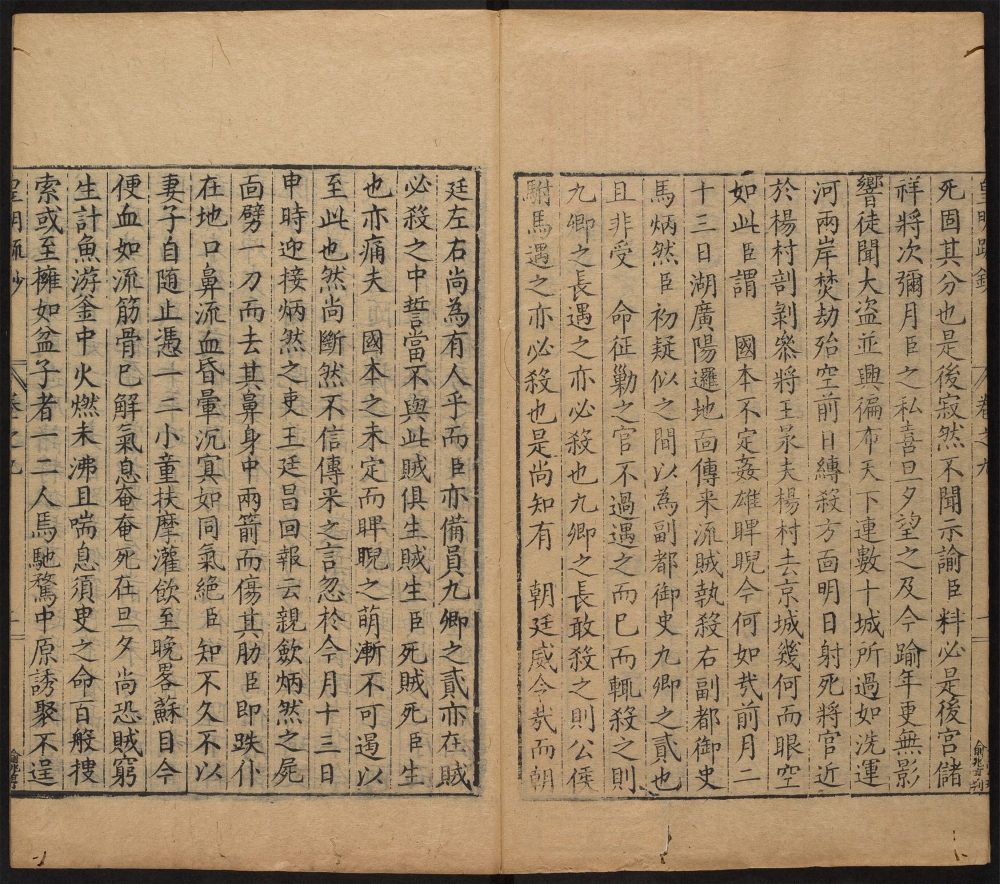 皇明疏鈔
卷之九
死固其分也是後寂然不聞示諭臣料必是後宮儲
祥將次彌月臣之私喜旦夕望之及今踰年更無影
響徒聞大盜並興徧布天下連數十城所過如洗運
河兩岸焚劫殆空前日縛殺方面明日射死將官近
於楊村剖剝叅將王杲夫楊村去京城幾何而眼空
如此臣謂　國本不定姦雄睥睨今何如㢤前月二
十三日湖廣陽邏地面傳来流賊執殺右副都御史
馬炳然臣初疑似之間以為副都御史九卿之貳也
且非受　命征勦之官不過遇之而已而輒殺之則
九卿之長遇之亦必殺也九卿之長敢殺之則公侯
駙馬遇之亦必殺也是尚知有　朝廷威令㢤而朝
廷左右尚為有人乎而臣亦備員九卿之貳亦在賊
必殺之中誓當不與此賊俱生賊生臣死賊死臣生
也亦痛夫　國本之未定而睥睨之萌漸不可遏以
至此也然尚斷然不信傳来之言忽於今月十三日
申時迎接炳然之吏王廷昌回報云親歛炳然之屍
面劈一刀而去其鼻身中兩箭而傷其肋臣即跌仆
在地口鼻流血昏暈沉冥如同氣絶臣知不久不以
妻子自随止憑一二小童扶摩灌飲至晚畧蘇目今
便血如流筋骨已解氣息奄奄死在旦夕尚恐賊窮
生計魚游釜中火燃未沸且喘息須臾之命百般捜
索或至擁如盆子者一二人馬馳騖中原誘聚不逞
皇明疏鈔
卷之九